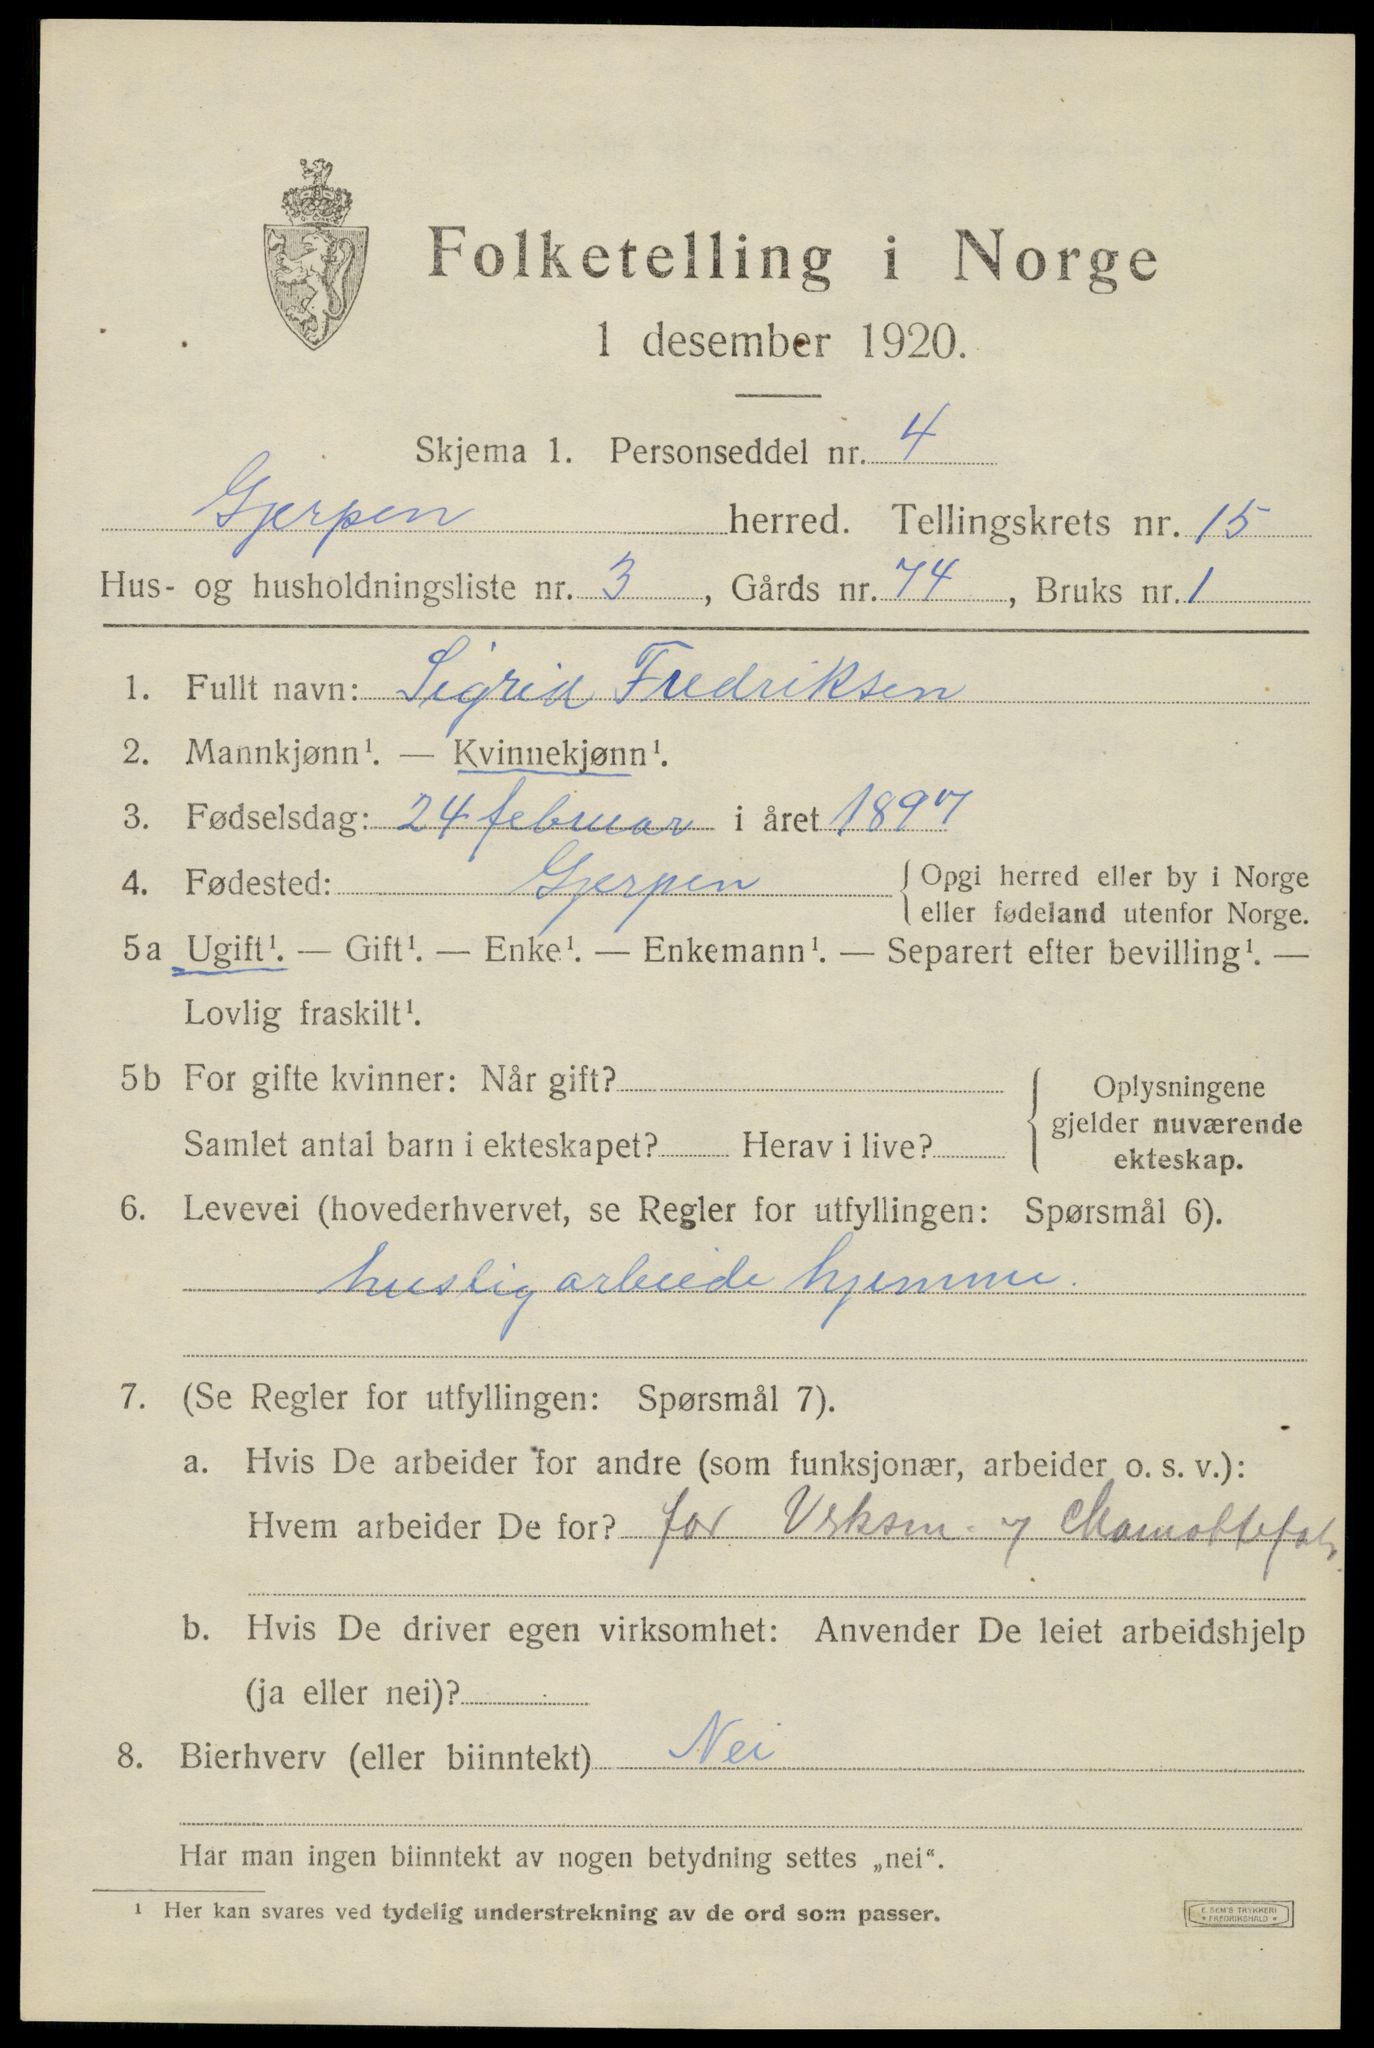 Folketelling i Norge
1 desember 1920.
Skjema 1. Personseddel nr. 4
Gjerpen herred. Tellingskrets nr. 15
Hus- og husholdningsliste nr. 3, Gårds nr. 74, Bruks nr. 1
1. Fullt navn: Sigrid Fredriksen
2. Mannkjønn¹. — Kvinnekjønn¹.
3. Fødselsdag: 24 februar i året 1897
4. Fødested: Gjerpen
Opgi herred eller by i Norge
eller fødeland utenfor Norge.
5a Ugift¹. — Gift¹. — Enke¹. — Enkemann¹. — Separert efter bevilling¹. —
Lovlig fraskilt¹.
5b For gifte kvinner: Når gift?
Samlet antal barn i ekteskapet? Herav i live?
Oplysningene
gjelder nuværende
ekteskap.
6. Levevei (hovederhvervet, se Regler for utfyllingen: Spørsmål 6).
huslig arbeide hjemme.
7. (Se Regler for utfyllingen: Spørsmål 7).
a. Hvis De arbeider for andre (som funksjonær, arbeider o. s. v.):
Hvem arbeider De for? far
b. Hvis De driver egen virksomhet: Anvender De leiet arbeidshjelp
(ja eller nei)?
8. Bierhverv (eller biinntekt) Nei
Har man ingen biinntekt av nogen betydning settes „nei“.
¹ Her kan svares ved tydelig understrekning av de ord som passer.
E. SEM'S TRYKKERI
FREDRIKSHALD